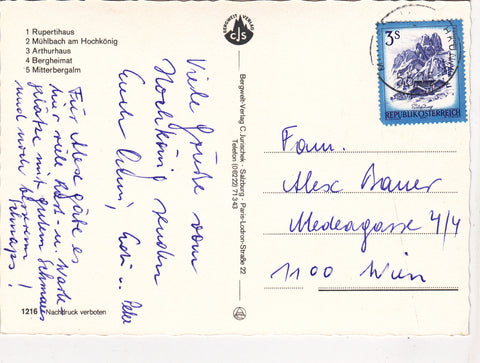 1 Rupertihaus
2 Mühlbach am Hochkönig
3 Arthurhaus
4 Bergheimat
5 Mitterbergalm
Viele Grüße vom
Hochkönig senden
Euch u. Peter
Für Alex gäbe es
hier viele Rast- u.
plätze mit gutem Schmaus
und noch besserem
Schnaps!
1216 Nachdruck verboten
BERGWELT-VERLAG
CJS
Bergwelt-Verlag C. Jurischek · Salzburg - Paris-Lodron-Straße 22
Telefon (06222) 71343
3S
REPUBLIK ÖSTERREICH
Fam.
Alex Bauer
Medeagasse 4/4
1100 Wien